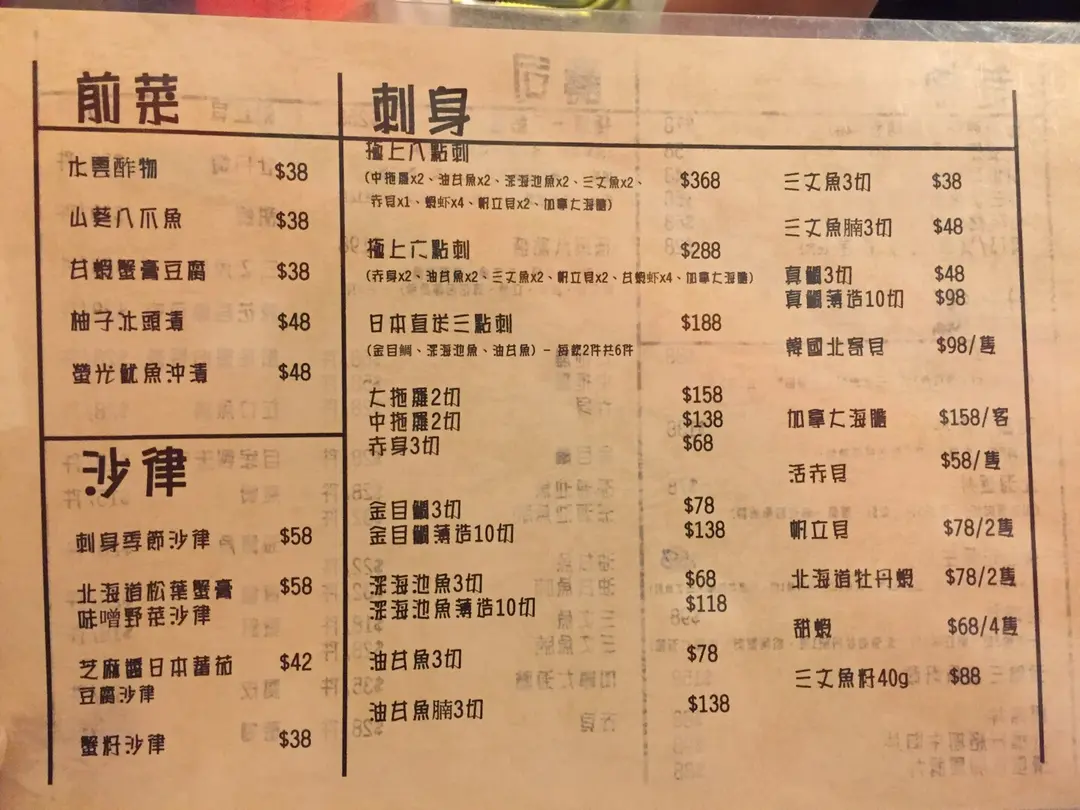 前菜
水雲酢物 $38
山葵八爪魚 $38
甘蝦蟹膏豆腐 $38
柚子冰頭漬 $48
螢光魷魚沖漬 $48
沙律
刺身季節沙律 $58
北海道松葉蟹膏 $58
味噌野菜沙律
芝麻醬日本蕃茄 $42
豆腐沙律
蟹籽沙律 $38
刺身
極上八點刺 $368
(中拖羅x2、油甘魚x2、深海池魚x2、三文魚x2、
赤貝x1、蝦x4、帆立貝x2、加拿大海膽)
極上六點刺 $288
(赤身x2、油甘魚x2、三文魚x2、帆立貝x2、甘蝦x4、加拿大海膽)
日本直送三點刺 $188
(金目鯛、深海池魚、油甘魚) - 每款2件共6件
大拖羅2切 $158
中拖羅2切 $138
赤身3切 $68
金目鯛3切 $78
金目鯛薄造10切 $138
深海池魚3切 $68
深海池魚薄造10切 $118
油甘魚3切 $78
油甘魚腩3切 $138
三文魚3切 $38
三文魚腩3切 $48
真鯛3切 $48
真鯛薄造10切 $98
韓國北寄貝 $98/隻
加拿大海膽 $158/客
活赤貝 $58/隻
帆立貝 $78/2隻
北海道牡丹蝦 $78/2隻
甜蝦 $68/4隻
三文魚籽40g $88